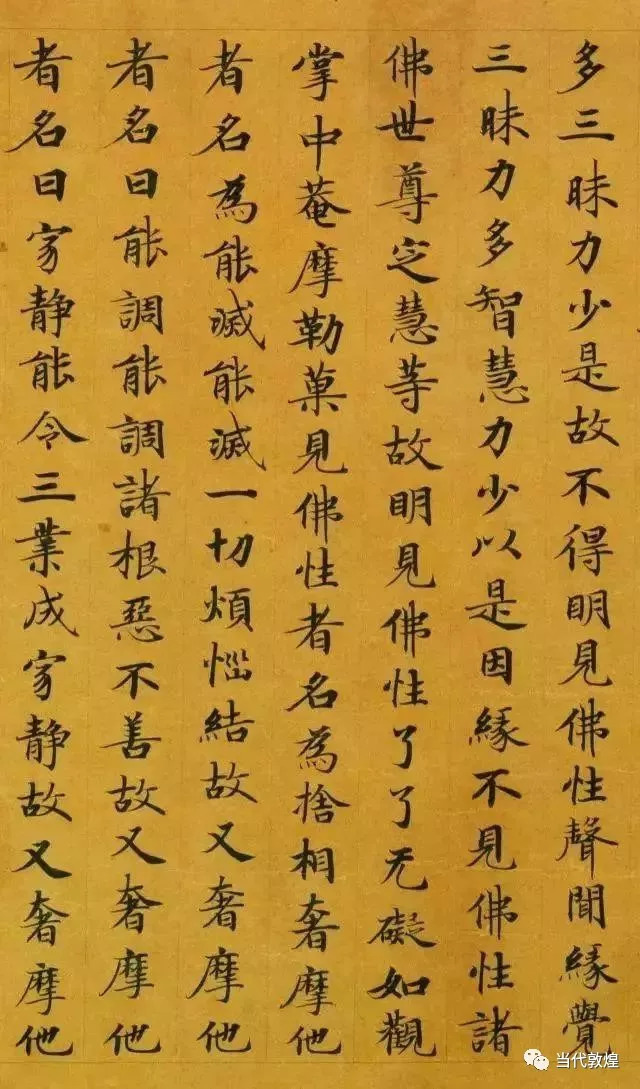 多三昧力少是故不得明見佛性聲聞緣覺
三昧力多智慧力少以是因緣不見佛性諸
佛世尊定慧等故明見佛性了了无礙如觀
掌中菴摩勒菓見佛性者名為捨相奢摩他
者名為能滅能滅一切煩惱結故又奢摩他
者名曰能調能調諸根惡不善故又奢摩他
者名曰寂静能令三業成寂静故又奢摩他
当代敦煌